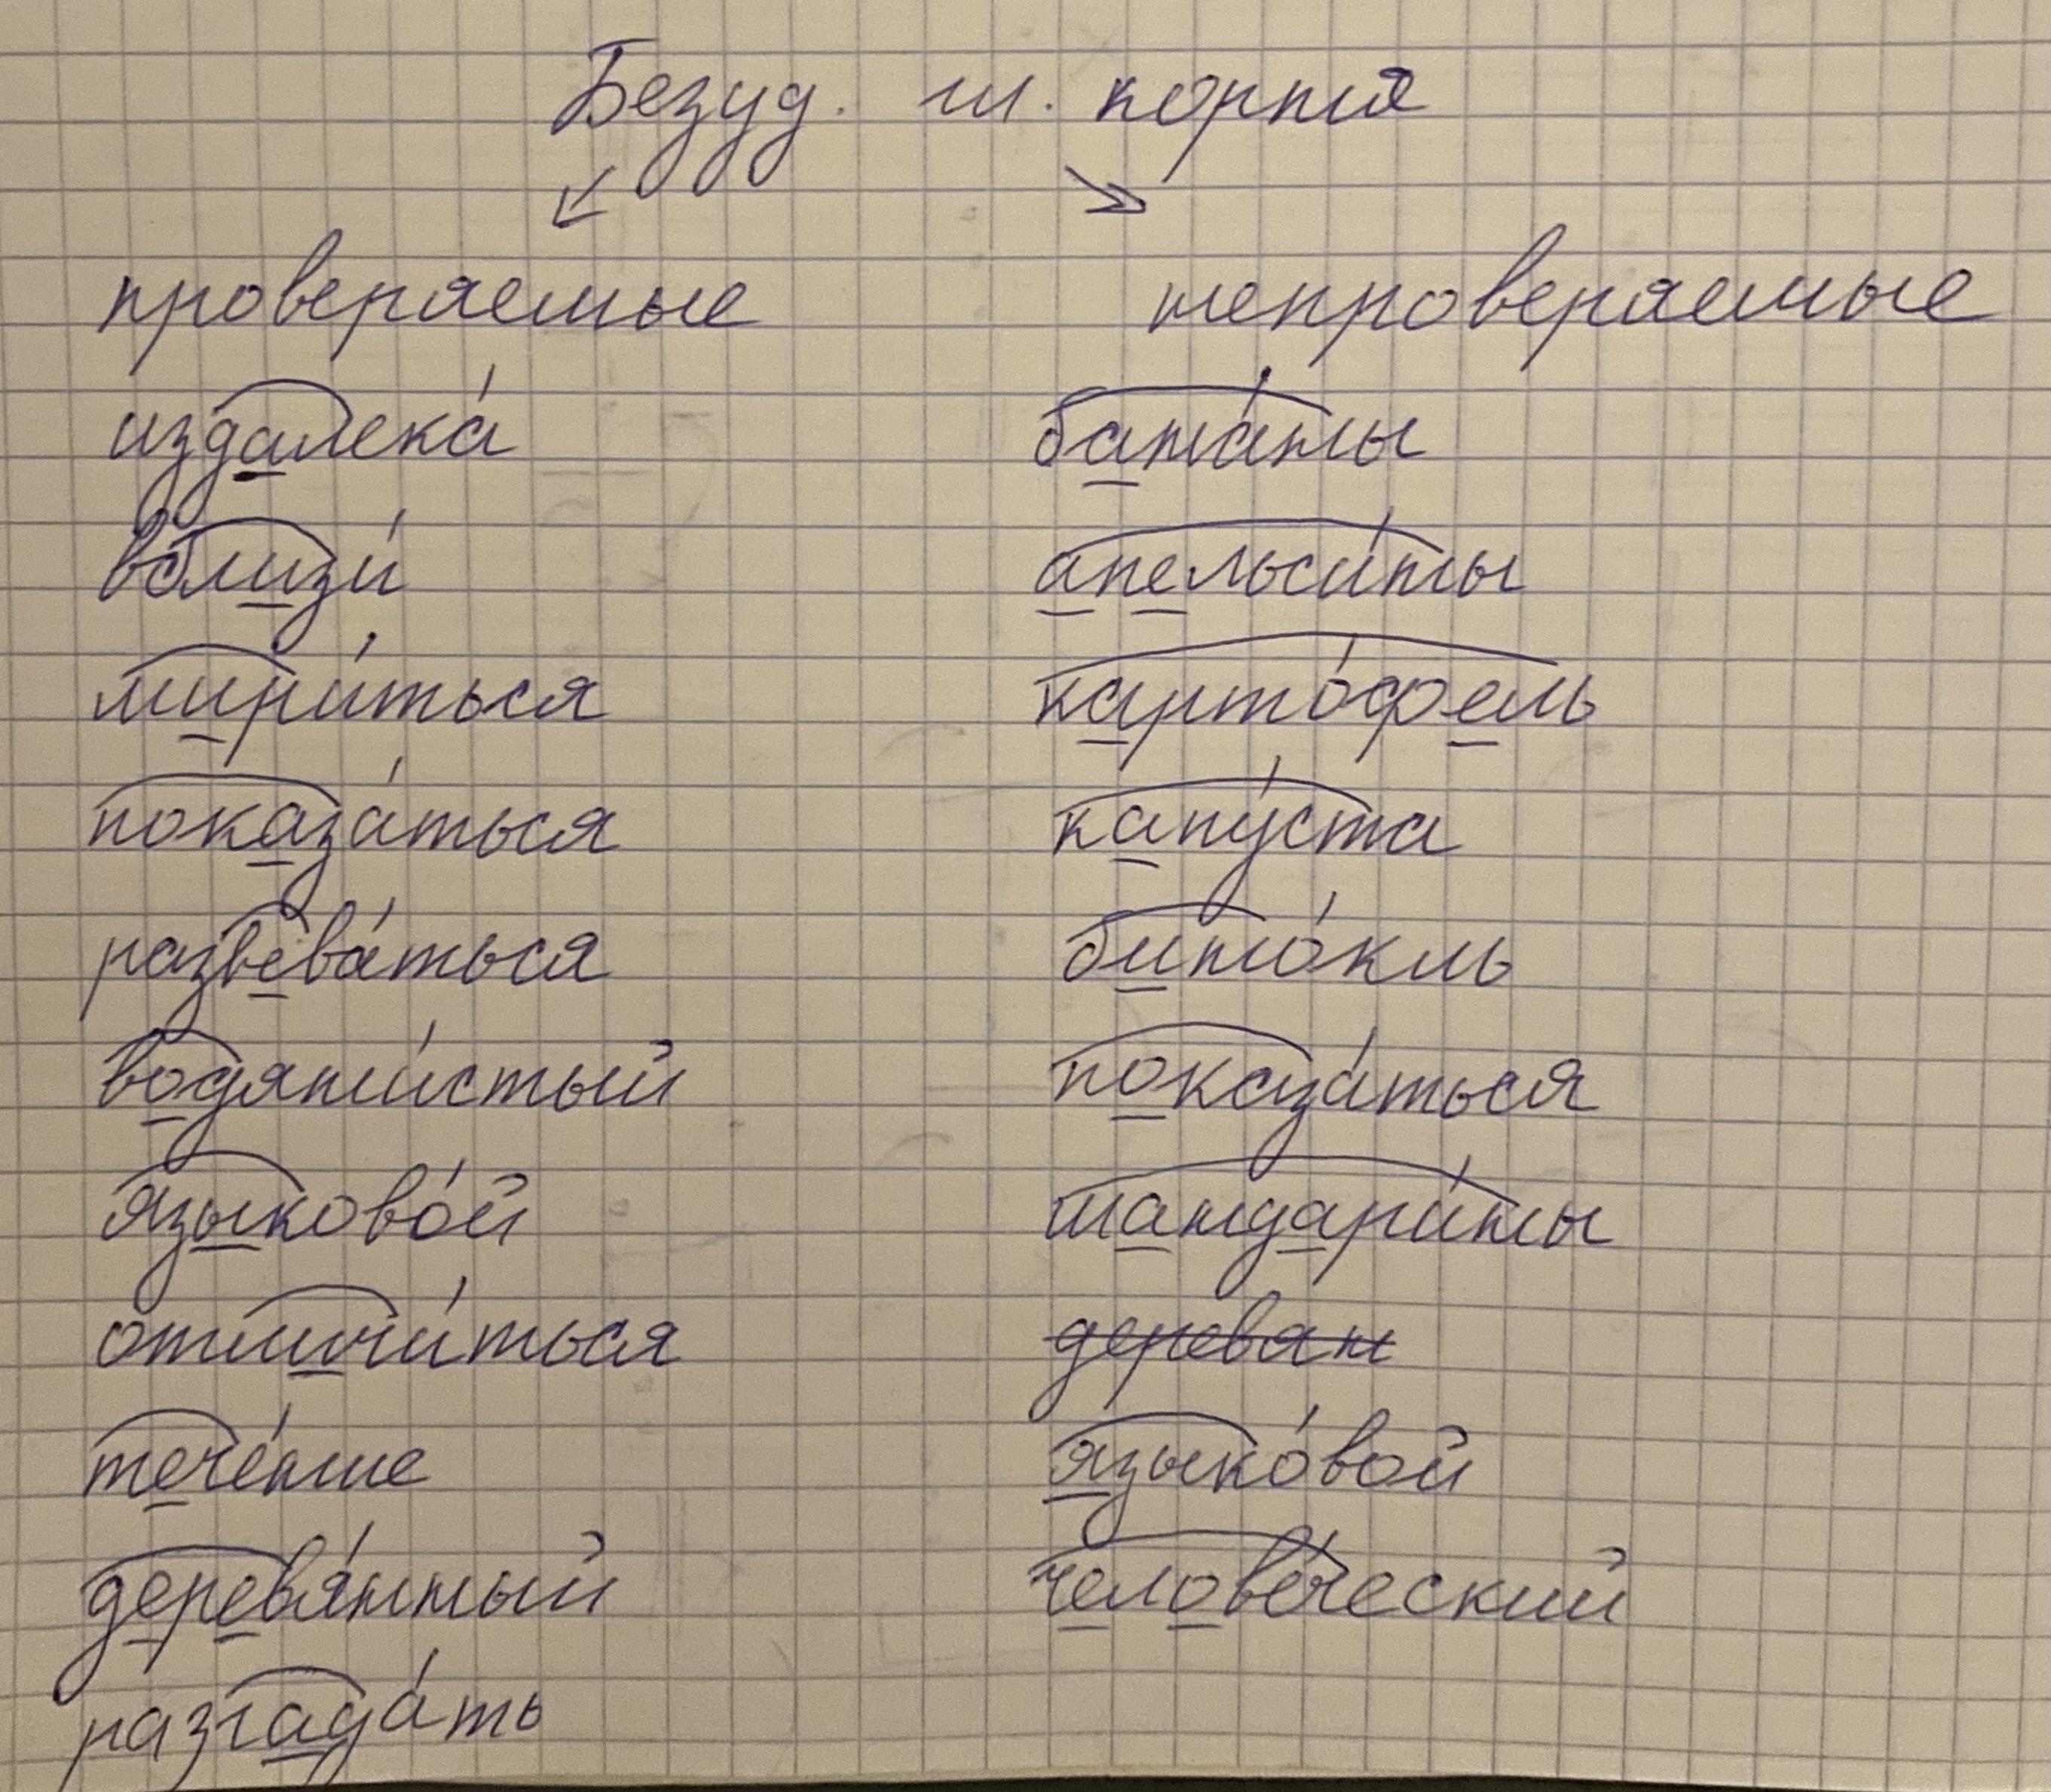 Безуд. гл. корня
проверяемые
издалека́
вблизи́
мири́ться
показа́ться
развева́ться
водяни́стый
языково́й
отличи́ться
тече́ние
деревя́нный
разгада́ть
непроверяемые
бата́ты
апельси́ны
карто́фель
капу́ста
бино́кль
показа́ться
мандари́ны
деревян
языко́вой
челове́ческий